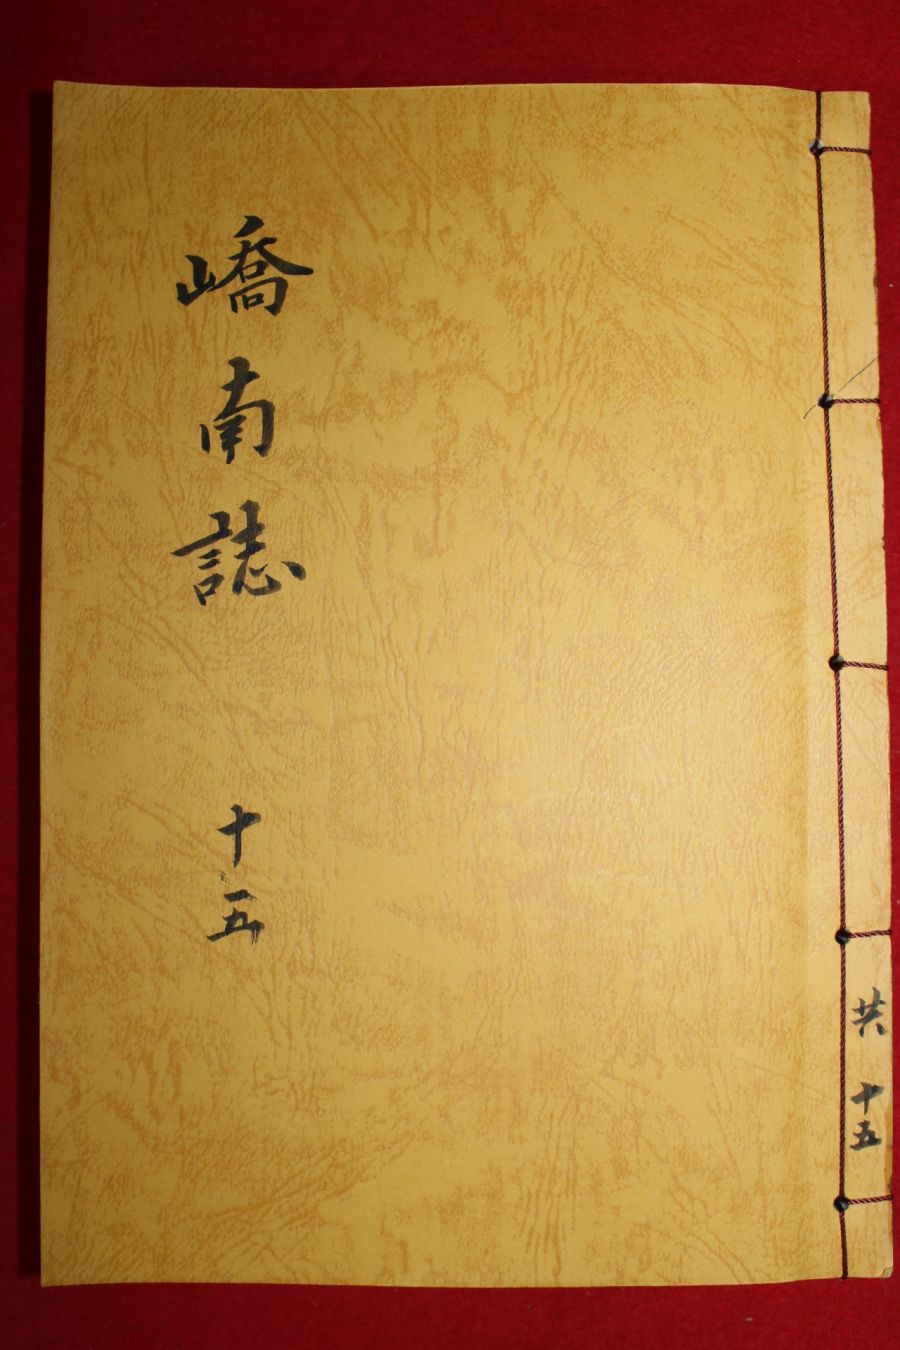 嶠南誌
十五
共十五